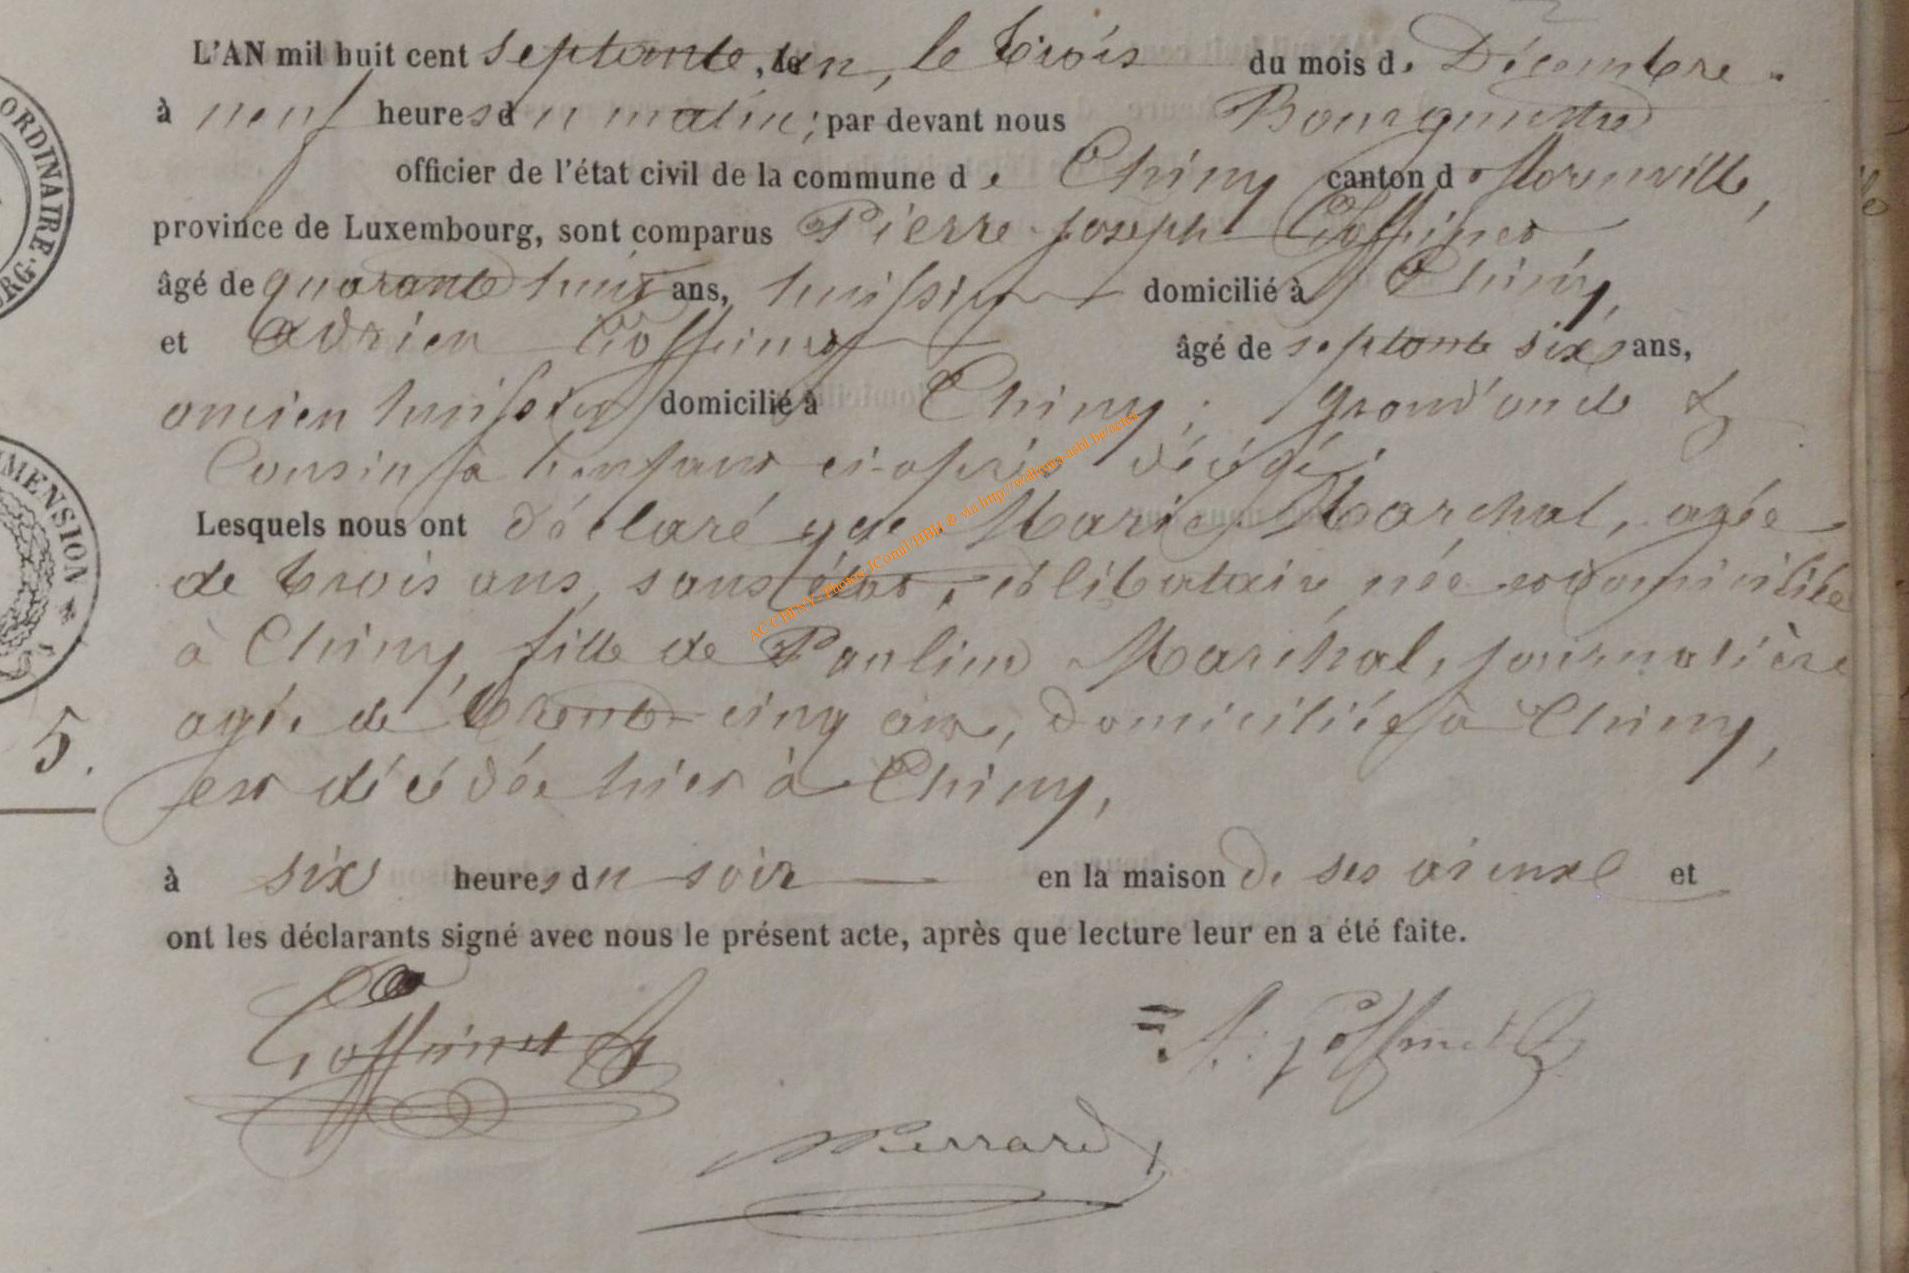 L'AN mil huit cent septante, un, le trois du mois de Décembre
à neuf heures du matin; par devant nous Bourgmestre
officier de l'état civil de la commune de Chiny canton de Florenville,
province de Luxembourg, sont comparus Pierre Joseph Goffinet,
âgé de quarante huit ans, huissier domicilié à Chiny,
et Adrien Goffinet âgé de septante six ans,
ancien huissier domicilié à Chiny; grand'oncle &
Cousin à l'enfant ci-après décédé;
Lesquels nous ont déclaré que Marie Marchal, agée
de trois ans, sans état, célibataire née et domiciliée
à Chiny, fille de Pauline Marchal, journalière
agée de trente cinq ans, domiciliée à Chiny,
est décédée hier à Chiny,
à six heures du soir en la maison de ses aieux et
ont les déclarants signé avec nous le présent acte, après que lecture leur en a été faite.
Goffinet
A. Goffinet
Perrard
ORDINAIRE
MENSION
5.